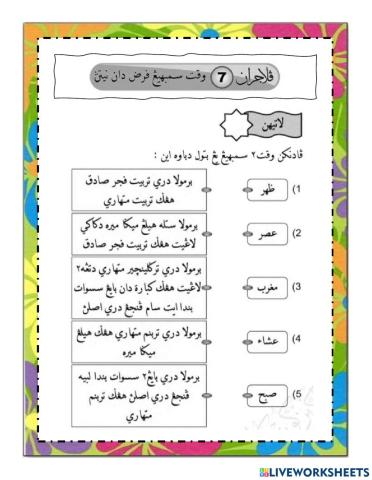 ڤلاجران 7 وقت سمبهيڠ فرض دان نيتڽ
لاتيهن
ڤادنکن وقت٢ سمبهيڠ يڠ بتول دباوه اين :
(1 ظهر
برمولا دري تربيت فجر صادق
هڠݢ تربيت متهاري
(2 عصر
برمولا ستله هيلڠ ميݢا ميره دکاکي
لاڠيت هڠݢ تربيت فجر صادق
(3 مغرب
برمولا دري ترݢلينچير متهاري دتڠه٢
لاڠيت هڠݢ کبارة دان بايڠ سسوات
بندا ايت سام ڤنجڠ دري اصلڽ
(4 عشاء
برمولا دري تربنم متهاري هڠݢ هيلڠ
ميݢا ميره
(5 صبح
برمولا دري بايڠ٢ سسوات بندا لبيه
ڤنجڠ دري اصلڽ هڠݢ تربنم
متهاري
LIVEWORKSHEETS